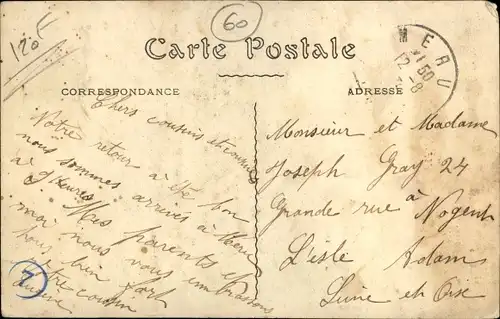 120 f
60
Carte Postale
MERU
12-8
CORRESPONDANCE
ADRESSE
Chers cousins et cousines
Notre retour a été bon
nous sommes arrivés à Meru
à 9 heures Mes parents et
moi nous vous embrassons
tous bien fort
Votre cousin
Monsieur et Madame
Joseph Gray 24
Grande rue à Nogent
L'isle Adam
Seine et Oise